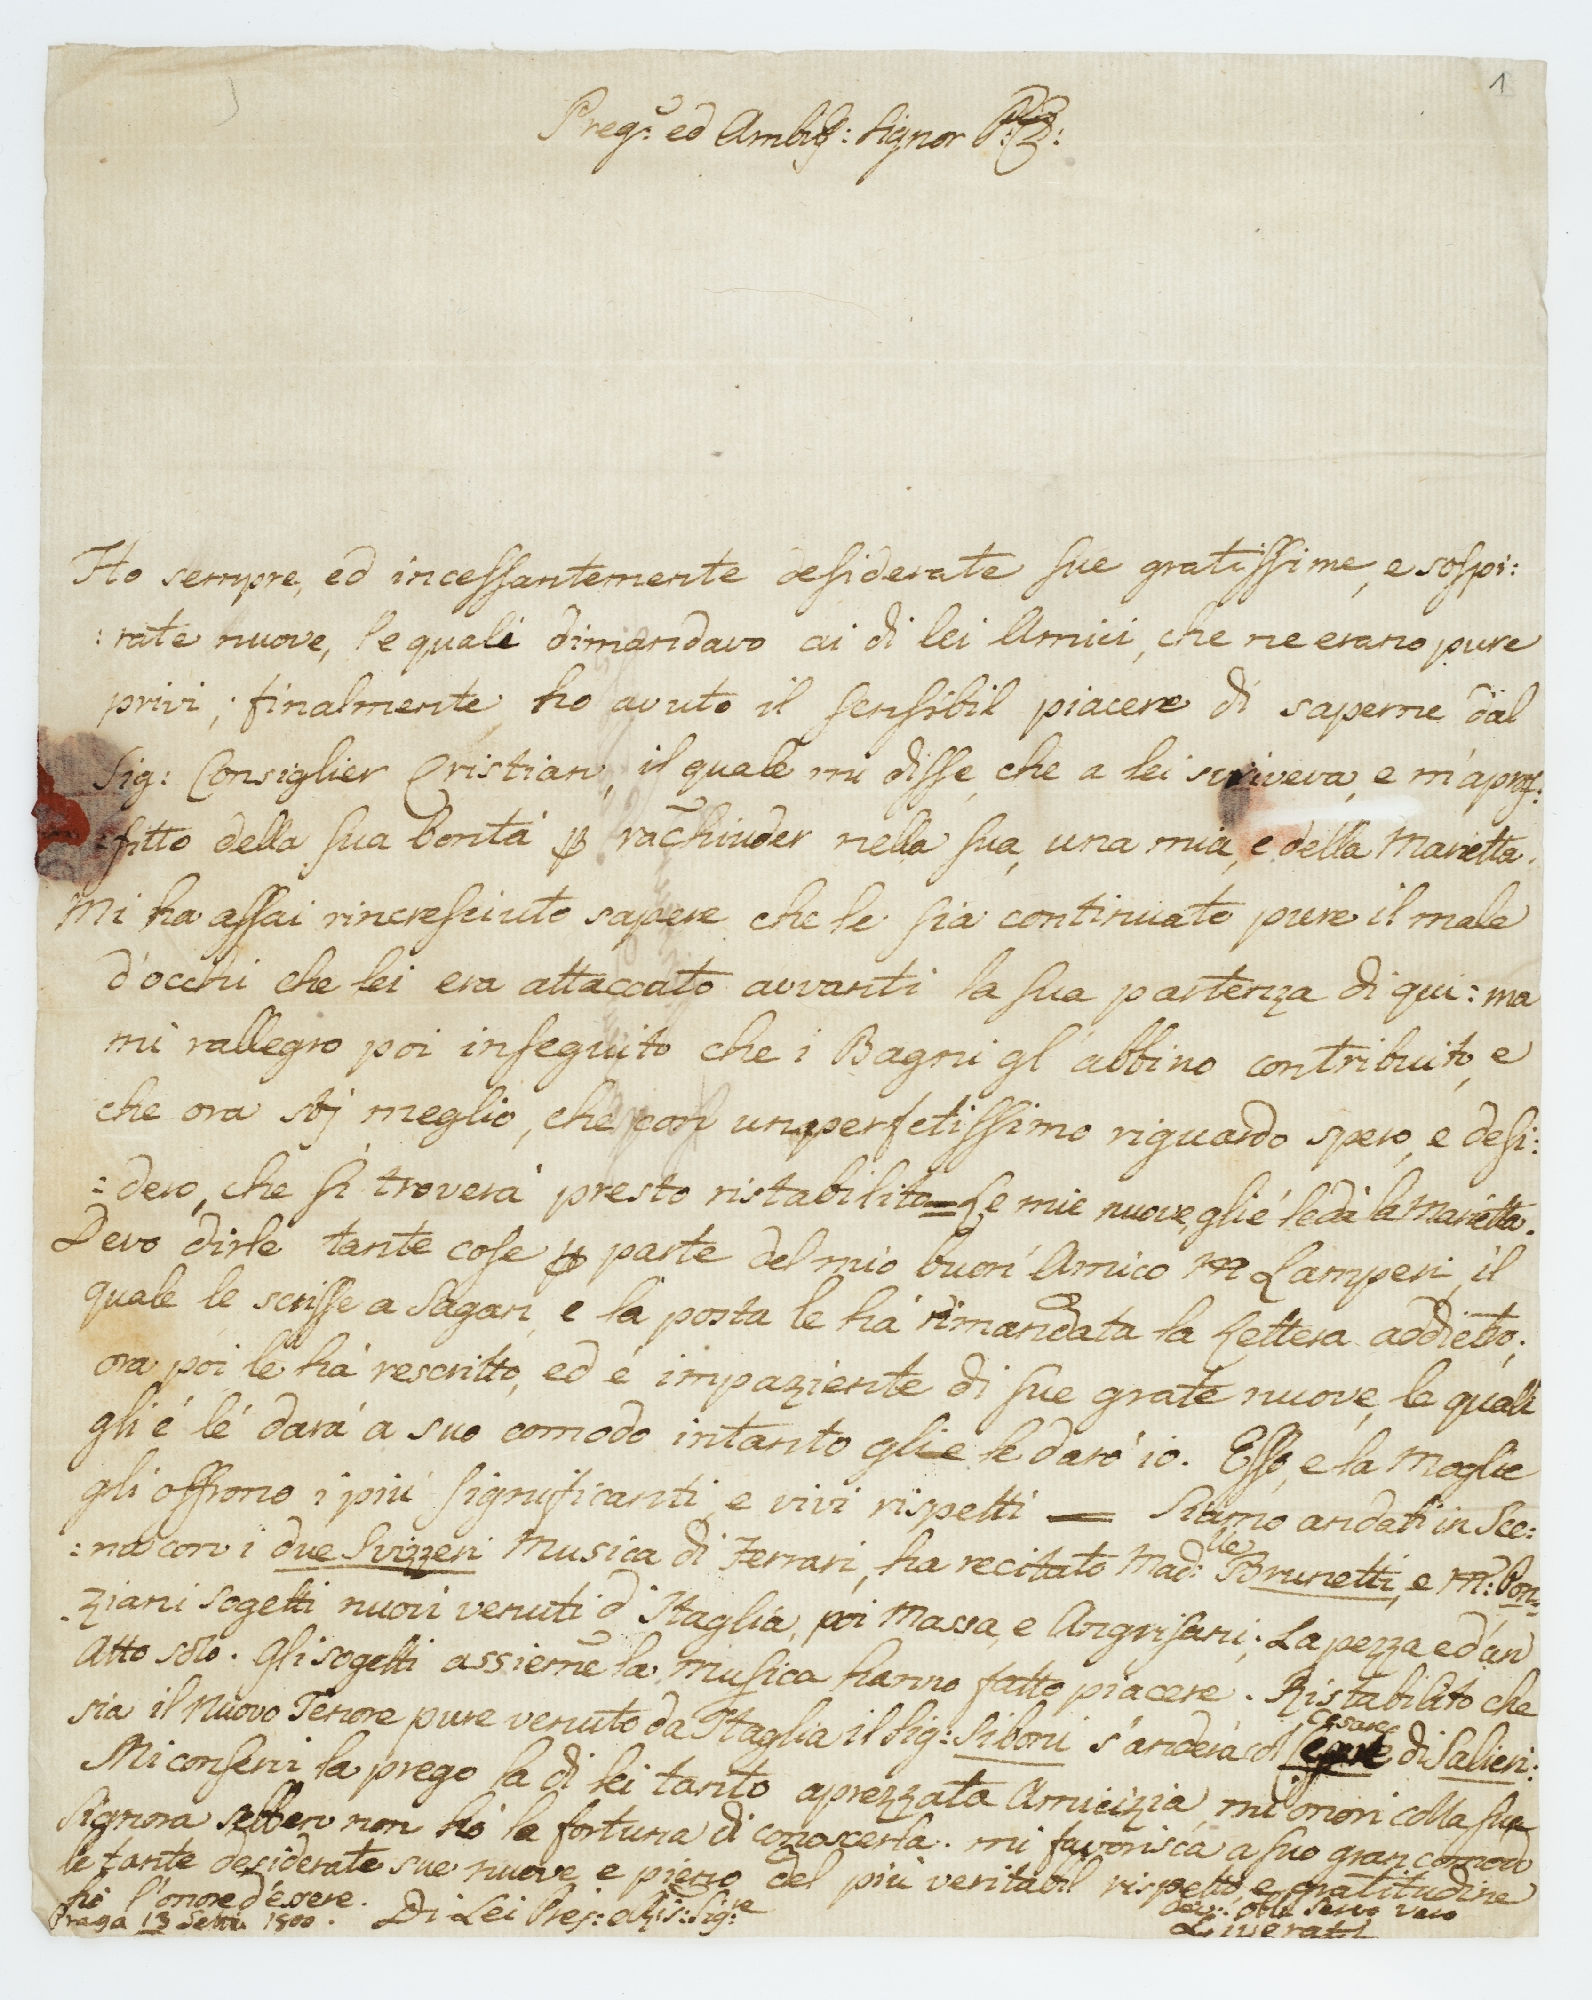 1
Preg.: ed Ambiss: Signor P:
Ho sempre, ed incessantemente desiderate sue gratissime, e sospi:
:rate nuove, le quali dimandavo ai di lei Amici, che ne erano pure
privi; finalmente ho avuto il sensibil piacere di saperne dal
Sig: Consiglier Cristian, il quale mi disse, che a lei scriveva, e m'aprof:
:fitto della sua bontà rachiuder nella sua, una mia, e della Marietta.
Mi ha assai rincresciuto sapere che le sia continuato pure il male
d'occhi che lei era attaccato avvanti la sua partenza di qui: ma
mi rallegro poi inseguito che i Bagni gl'abbino contribuito, e
che ora stj meglio, che con un perfetissimo riguardo spero, e desi:
:dero, che si troverà presto ristabilito = Le mie nuove gli é le dà la Marietta.
Devo dirle tante cose parte del mio buon Amico M Lamperi, il
quale le scrisse a Sagan, e la posta le hà rimandata la Lettera addietro;
ora poi le hà rescritto, ed é impaziente di sue grate nuove, le quali
gli é lé darà a suo comodo intanto glie le darò io. Esso, e la Moglie
gli offrono i più significanti, e vivi rispetti — Siamo andati in Sce:
:na con i due Svizzeri Musica di Ferrari, ha recitato Mad:lle Brunetti, e M: Pon:
:ziani sogetti nuovi venuti d'Itaglia, poi Massa, e Angrisani; La pezza e d'un
Atto solo. Gli sogetti assieme la musica hanno fatto piacere. Ristabilito che
sia il Nuovo Tenore pure venuto da Itaglia il Sig: Siboni s'anderà col Cesare di Salieri:
Mi conservi la prego la di lei tanto aprezzata Amicizia, mi onori colla sua
Signora sebben non hò la fortuna di conoscerla. mi favorisca a suo gran comodo
le tante desiderate sue nuove, e pieno del più veritabil rispetto, e gratitudine
hò l'onore d'essere.
Praga 13 Setti. 1800. Di Lei Preg: Sig:re
dev: obb Servo vero
Liverati